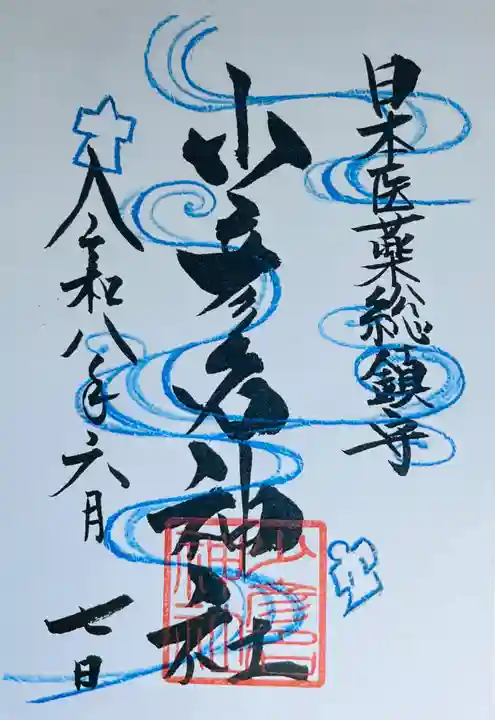 日本医薬総鎮守
少彦名神社
令和八年六月七日
少彦名
神社